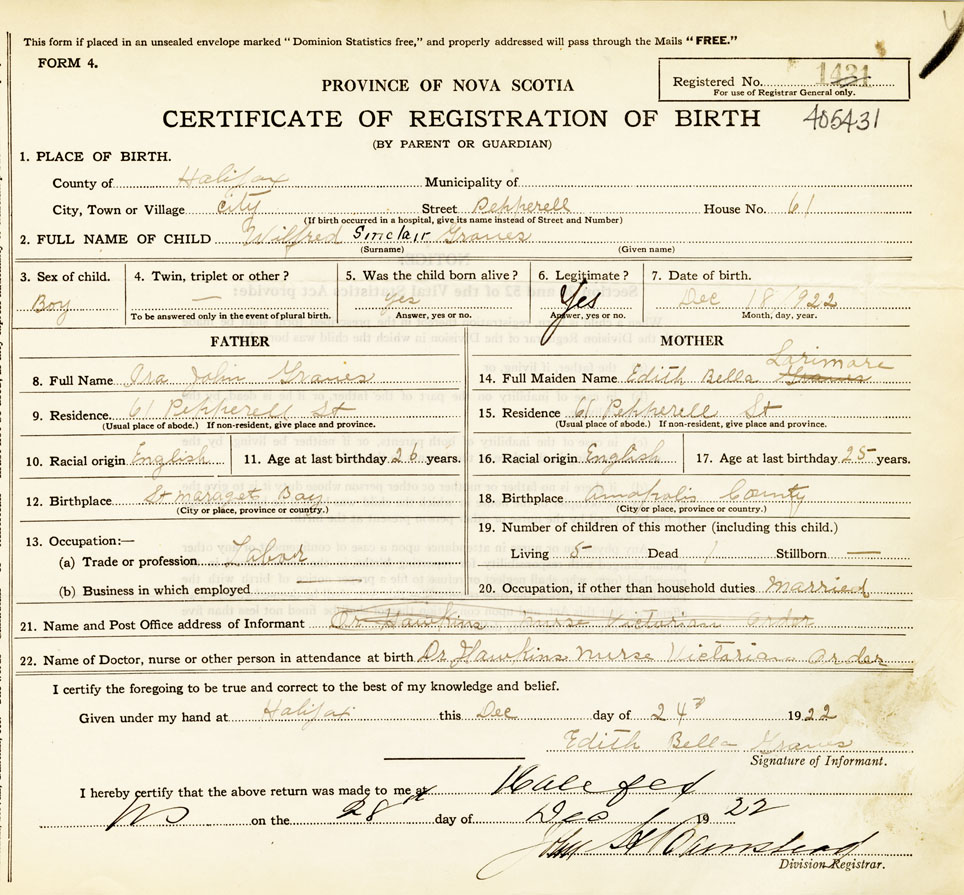 This form if placed in an unsealed envelope marked "Dominion Statistics free," and properly addressed will pass through the Mails "FREE."
FORM 4.
Registered No. 1421
For use of Registrar General only.
PROVINCE OF NOVA SCOTIA
CERTIFICATE OF REGISTRATION OF BIRTH 405431
(BY PARENT OR GUARDIAN)
1. PLACE OF BIRTH.
County of Halifax Municipality of
City, Town or Village City Street Pepperell House No. 61
(If birth occurred in a hospital, give its name instead of Street and Number)
2. FULL NAME OF CHILD Wilfred Sinclair Graves
(Surname) (Given name)
3. Sex of child. 4. Twin, triplet or other? 5. Was the child born alive? 6. Legitimate? 7. Date of birth.
Boy — Yes Yes Dec 18 1922
To be answered only in the event of plural birth. Answer, yes or no. Answer, yes or no. Month, day, year.
FATHER MOTHER
Larimore
8. Full Name Ira John Graves 14. Full Maiden Name Edith Bella Graves
9. Residence. 61 Pepperell St 15. Residence 61 Pepperell St
(Usual place of abode.) If non-resident, give place and province. (Usual place of abode.) If non-resident, give place and province.
10. Racial origin English 11. Age at last birthday 26 years. 16. Racial origin English 17. Age at last birthday 25 years.
12. Birthplace St Maraget Bay 18. Birthplace Annopolis County
(City or place, province or country.) (City or place, province or country.)
13. Occupation:— 19. Number of children of this mother (including this child.)
(a) Trade or profession Labor Living 5 Dead 1 Stillborn —
(b) Business in which employed — 20. Occupation, if other than household duties Married
21. Name and Post Office address of Informant Dr Hawkins Nurse Victorian Order
22. Name of Doctor, nurse or other person in attendance at birth Dr Hawkins Nurse Victorian Order
I certify the foregoing to be true and correct to the best of my knowledge and belief.
Given under my hand at Halifax this Dec day of 24th 1922
Edith Bella Graves
Signature of Informant.
I hereby certify that the above return was made to me at Halifax
NS on the 28th day of Dec 1922
Division Registrar.